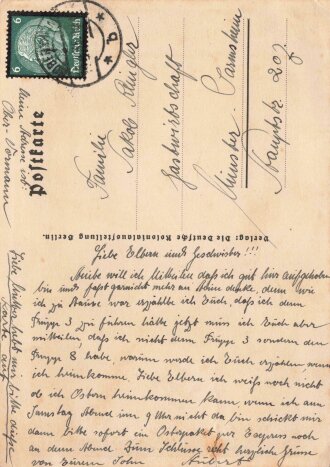 Deutsches Reich
6
6
Postkarte
Meine Adresse ist:
Ober-Vormann
Familie
Jakob Stingler
Gastwirtschaft
Münster Sarmsheim
Hauptstr 207
Verlag: Die Deutsche Kolonialausstellung Berlin.
Liebe Eltern und Geschwister!!!
will ich Mitteilen daß ich gut hir aufgehoben
bin und fast garnicht mehr an Heim denke, denn wie
ich zu Hause war erzählte ich Euch, daß ich den
Trupp 3 zu führen hätte jetzt muss ich Euch aber
mitteilen, daß ich nicht den Trupp 3 sondern den
Trupp 8 habe, warum werde ich Euch erzählen, wenn
ich heimkomme. Liebe Eltern ich weiß noch nicht
ob ich Ostern heimkommen kann wenn ich am
Samstag Abend um 9 Uhr nicht da bin schickt mir
dann bitte sofort ein Osterpaket per Express noch
an dem Abend. Zum Schlusse recht herzliche Grüsse
von Eurem Sohn
Liebe Mutter hebt uns bitte diese
Karte auf